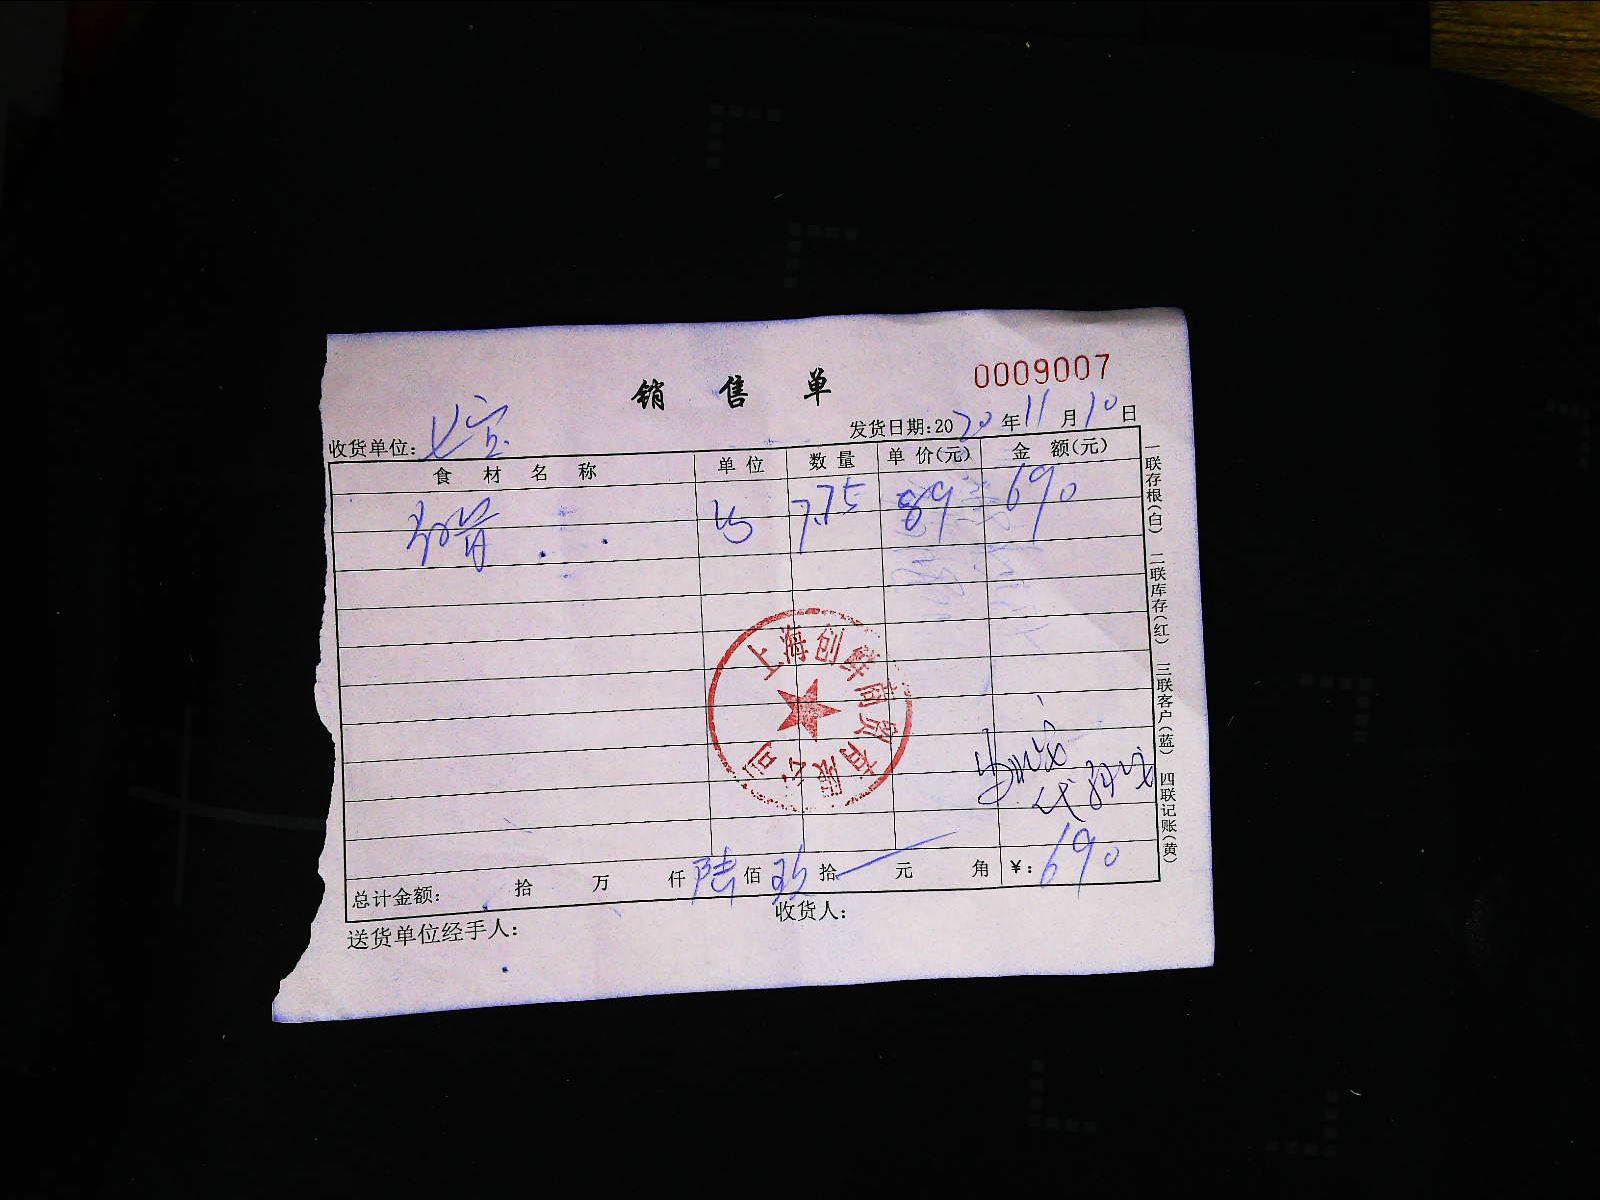 销售单
0009007
收货单位：七宝
发货日期:2020年11月10日
食材名称 单位 数量 单价(元) 金额(元)
7.75 89 690
上海创鲜商贸有限公司
总计金额： 拾 万 仟 陆 佰 玖 拾 元 角 ¥：690
送货单位经手人：
收货人：
一联存根(白) 二联库存(红) 三联客户(蓝) 四联记账(黄)